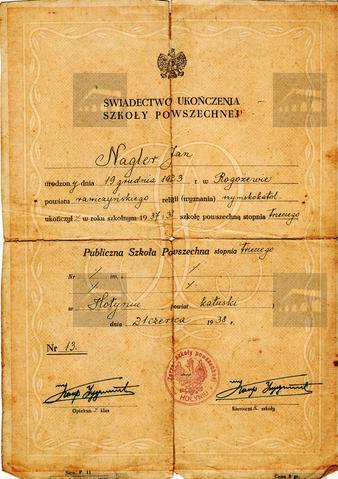 ŚWIADECTWO UKOŃCZENIA
SZKOŁY POWSZECHNEJ
Nagler Jan
urodzony dnia 19 grudnia 1923 r. w Rogozewie
powiatu rawiczyńskiego religii (wyznania) rzymskokatol
ukończył w roku szkolnym 1937/38 szkołę powszechną stopnia trzeciego
Publiczna Szkoła Powszechna stopnia trzeciego
Nr / im. /
w Hołyniu powiat kałuski
dnia 21 czerwca 1938 r.
Nr 13.
HOŁYNIU
Karp Zygmunt Karp Zygmunt
Opiekun klas Kierownik szkoły
Cena 5 gr.